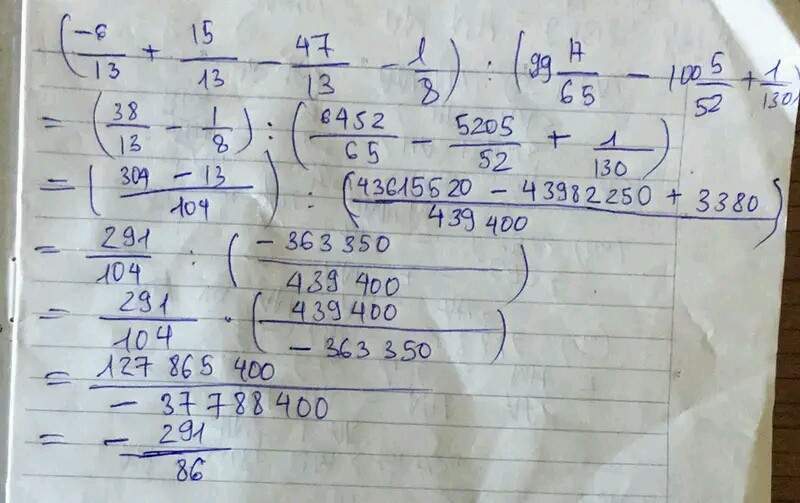 (-6/13 + 15/13 - 47/13 - 1/8) : (99 17/65 - 100 5/52 + 1/130)
= (38/13 - 1/8) : (6452/65 - 5205/52 + 1/130)
= (304 - 13/104) : (43615520 - 43982250 + 3380/439 400)
= 291/104 : (-363 350/439 400)
= 291/104 · (439 400/-363 350)
= 127 865 400/- 37 788 400
= - 291/86